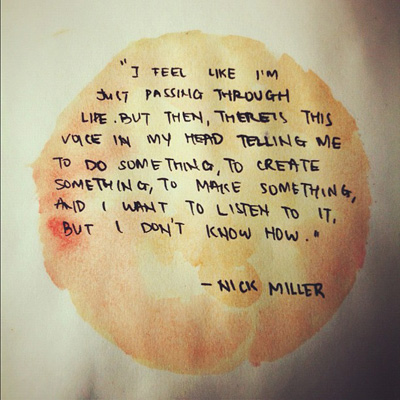 "I FEEL LIKE I'M
JUST PASSING THROUGH
LIFE. BUT THEN, THERE'S THIS
VOICE IN MY HEAD TELLING ME
TO DO SOMETHING, TO CREATE
SOMETHING, TO MAKE SOMETHING,
AND I WANT TO LISTEN TO IT,
BUT I DON'T KNOW HOW."
- NICK MILLER